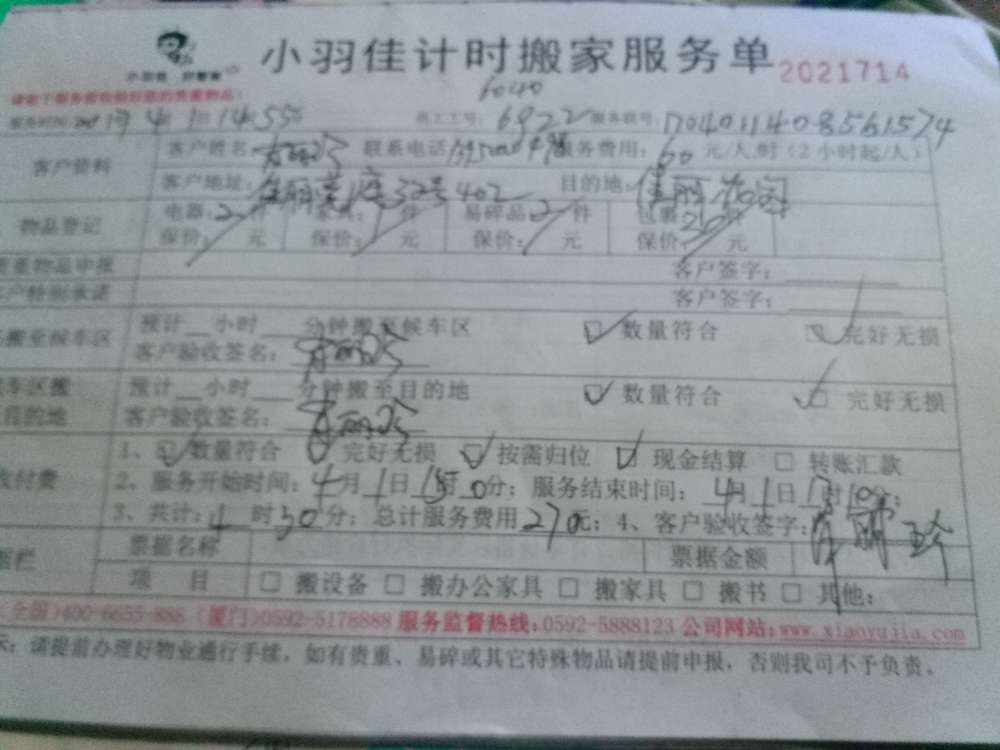 小羽佳计时搬家服务单 2021714
小羽佳 好管家
6040
请您于服务前收检好您的贵重物品:
服务时间:2017年4月1日14:55 员工工号:6922 服务联号:1704011408561574
客户资料 客户姓名: 联系电话: 服务费用:60元/人/时(2小时起/人)
客户地址:佳丽豪庭32号402 目的地:佳丽花园
物品登记 电器:2件 家具: 件 易碎品2件 包裹:20件
保价: 元 保价: 元 保价: 元 保价: 元
贵重物品申报 客户签字:
客户特别承诺 客户签字:
搬至候车区 预计__小时__分钟搬至候车区 ☑ 数量符合 ☑ 完好无损
客户验收签名:
车区搬 预计__小时__分钟搬至目的地 ☑ 数量符合 ☑ 完好无损
目的地 客户验收签名:
1、☑数量符合 ☑完好无损 ☑按需归位 ☑现金结算 □ 转账汇款
收付费 2、服务开始时间:4月1日 时 0分;服务结束时间:4月1日 时10分;
3、共计:4时30分;总计服务费用270元;4、客户验收签字:
据栏 票据名称 票据金额
项 目 □ 搬设备 □ 搬办公家具 □ 搬家具 □ 搬书 □ 其他:
(全国)400-6655-886 (厦门)0592-5178888 服务监督热线:0592-5888123 公司网站:www.xiaoyujia.com
示:请提前办理好物业通行手续,如有贵重、易碎或其它特殊物品请提前申报,否则我司不予负责。